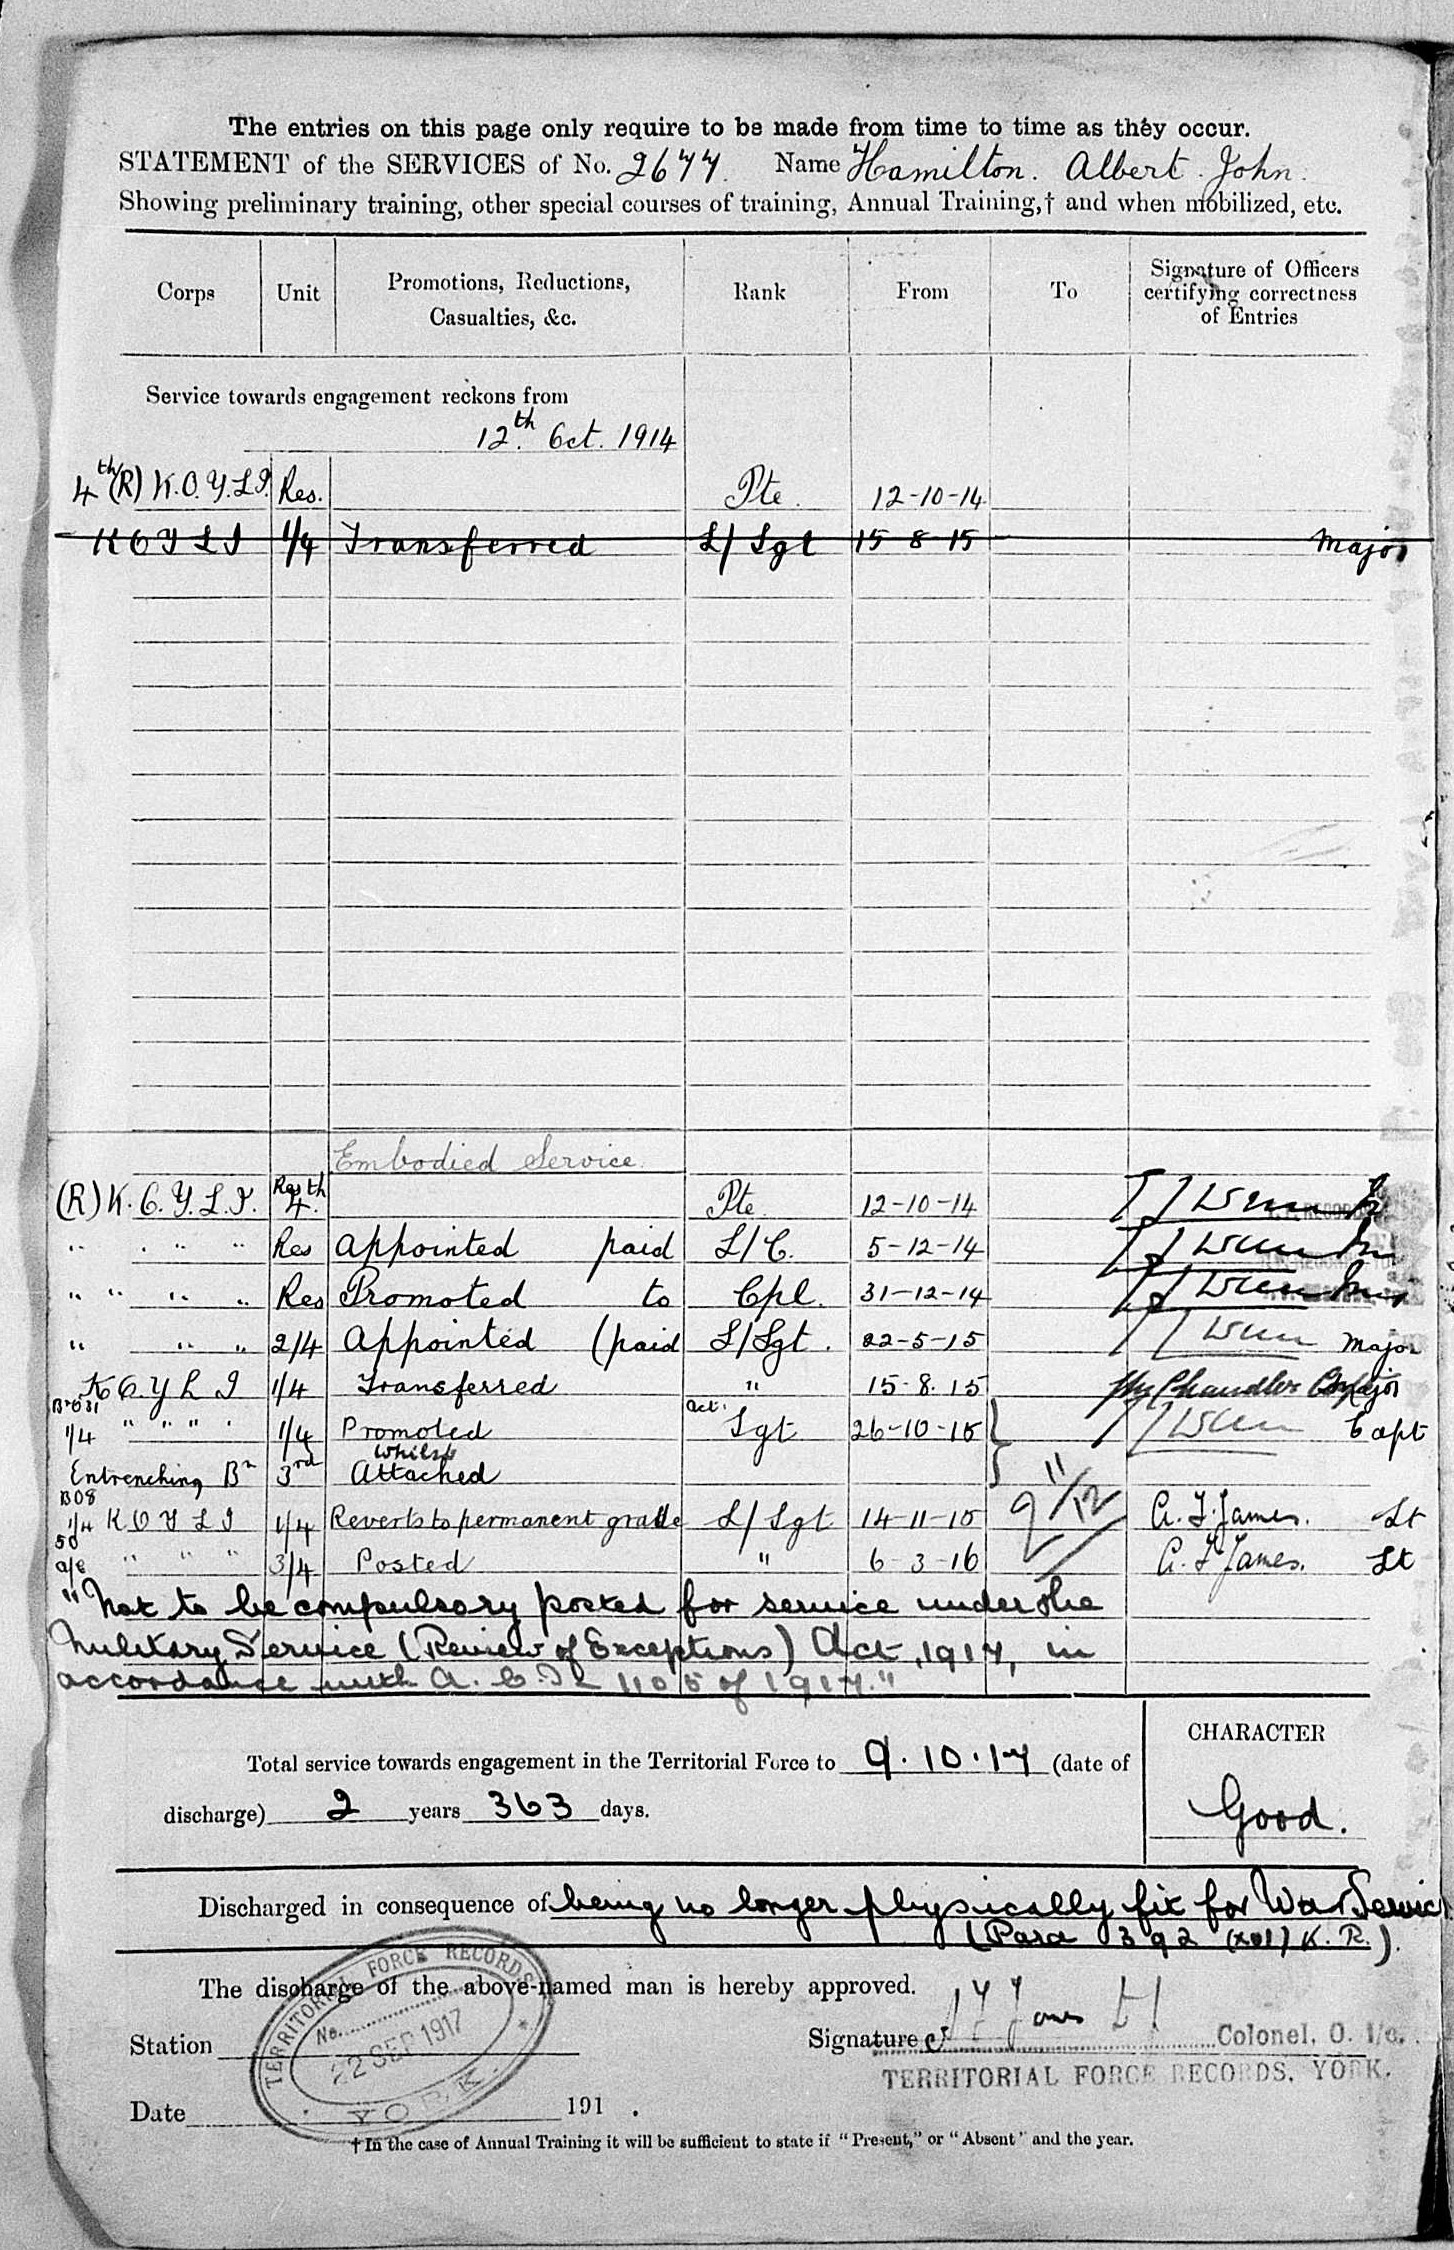 The entries on this page only require to be made from time to time as they occur.
STATEMENT of the SERVICES of No. 2677. Name Hamilton. Albert. John.
Showing preliminary training, other special courses of training, Annual Training,† and when mobilized, etc.
Corps Unit Promotions, Reductions, Casualties, &c. Rank From To Signature of Officers certifying correctness of Entries
Service towards engagement reckons from
12th. Oct. 1914
4th (R) K.O.Y.L.I. Res. Pte. 12-10-14
K O Y L I 1/4 Transferred L/Sgt 15-8-15 Major
Embodied Service.
(R) K.O.Y.L.I. Res 4th. Pte 12-10-14
" " " " Res Appointed paid L/C. 5-12-14
" " " " Res Promoted to Cpl. 31-12-14
" " " 2/4 Appointed (paid L/Sgt. 22-5-15 Major
K O Y L I 1/4 Transferred " 15-8-15 Chandler Major
1/4 " " " " 1/4 Promoted act. Sgt 26-10-15 Capt
Entrenching Bn 3rd whilst Attached
B08
1/4 K O Y L I 1/4 Reverts to permanent grade L/Sgt 14-11-15 9/11/12 A. F. James. Lt
50
" " " 3/4 Posted " 6-3-16 A. F. James. Lt
"Not to be compulsory posted for service under the
Military Service (Review of Exceptions) Act, 1917, in
accordance with A.C.I. 1105 of 1917."
Total service towards engagement in the Territorial Force to 9.10.17 (date of
discharge) 2 years 363 days.
CHARACTER
Good.
Discharged in consequence of being no longer physically fit for War Service
(Para 392 (xvi) K.R.).
The discharge of the above-named man is hereby approved.
Station
Signature Colonel, O. i/c.
TERRITORIAL FORCE RECORDS, YORK.
TERRITORIAL FORCE RECORDS
No.
22 SEP 1917
YORK.
Date 191 .
† In the case of Annual Training it will be sufficient to state if "Present," or "Absent" and the year.